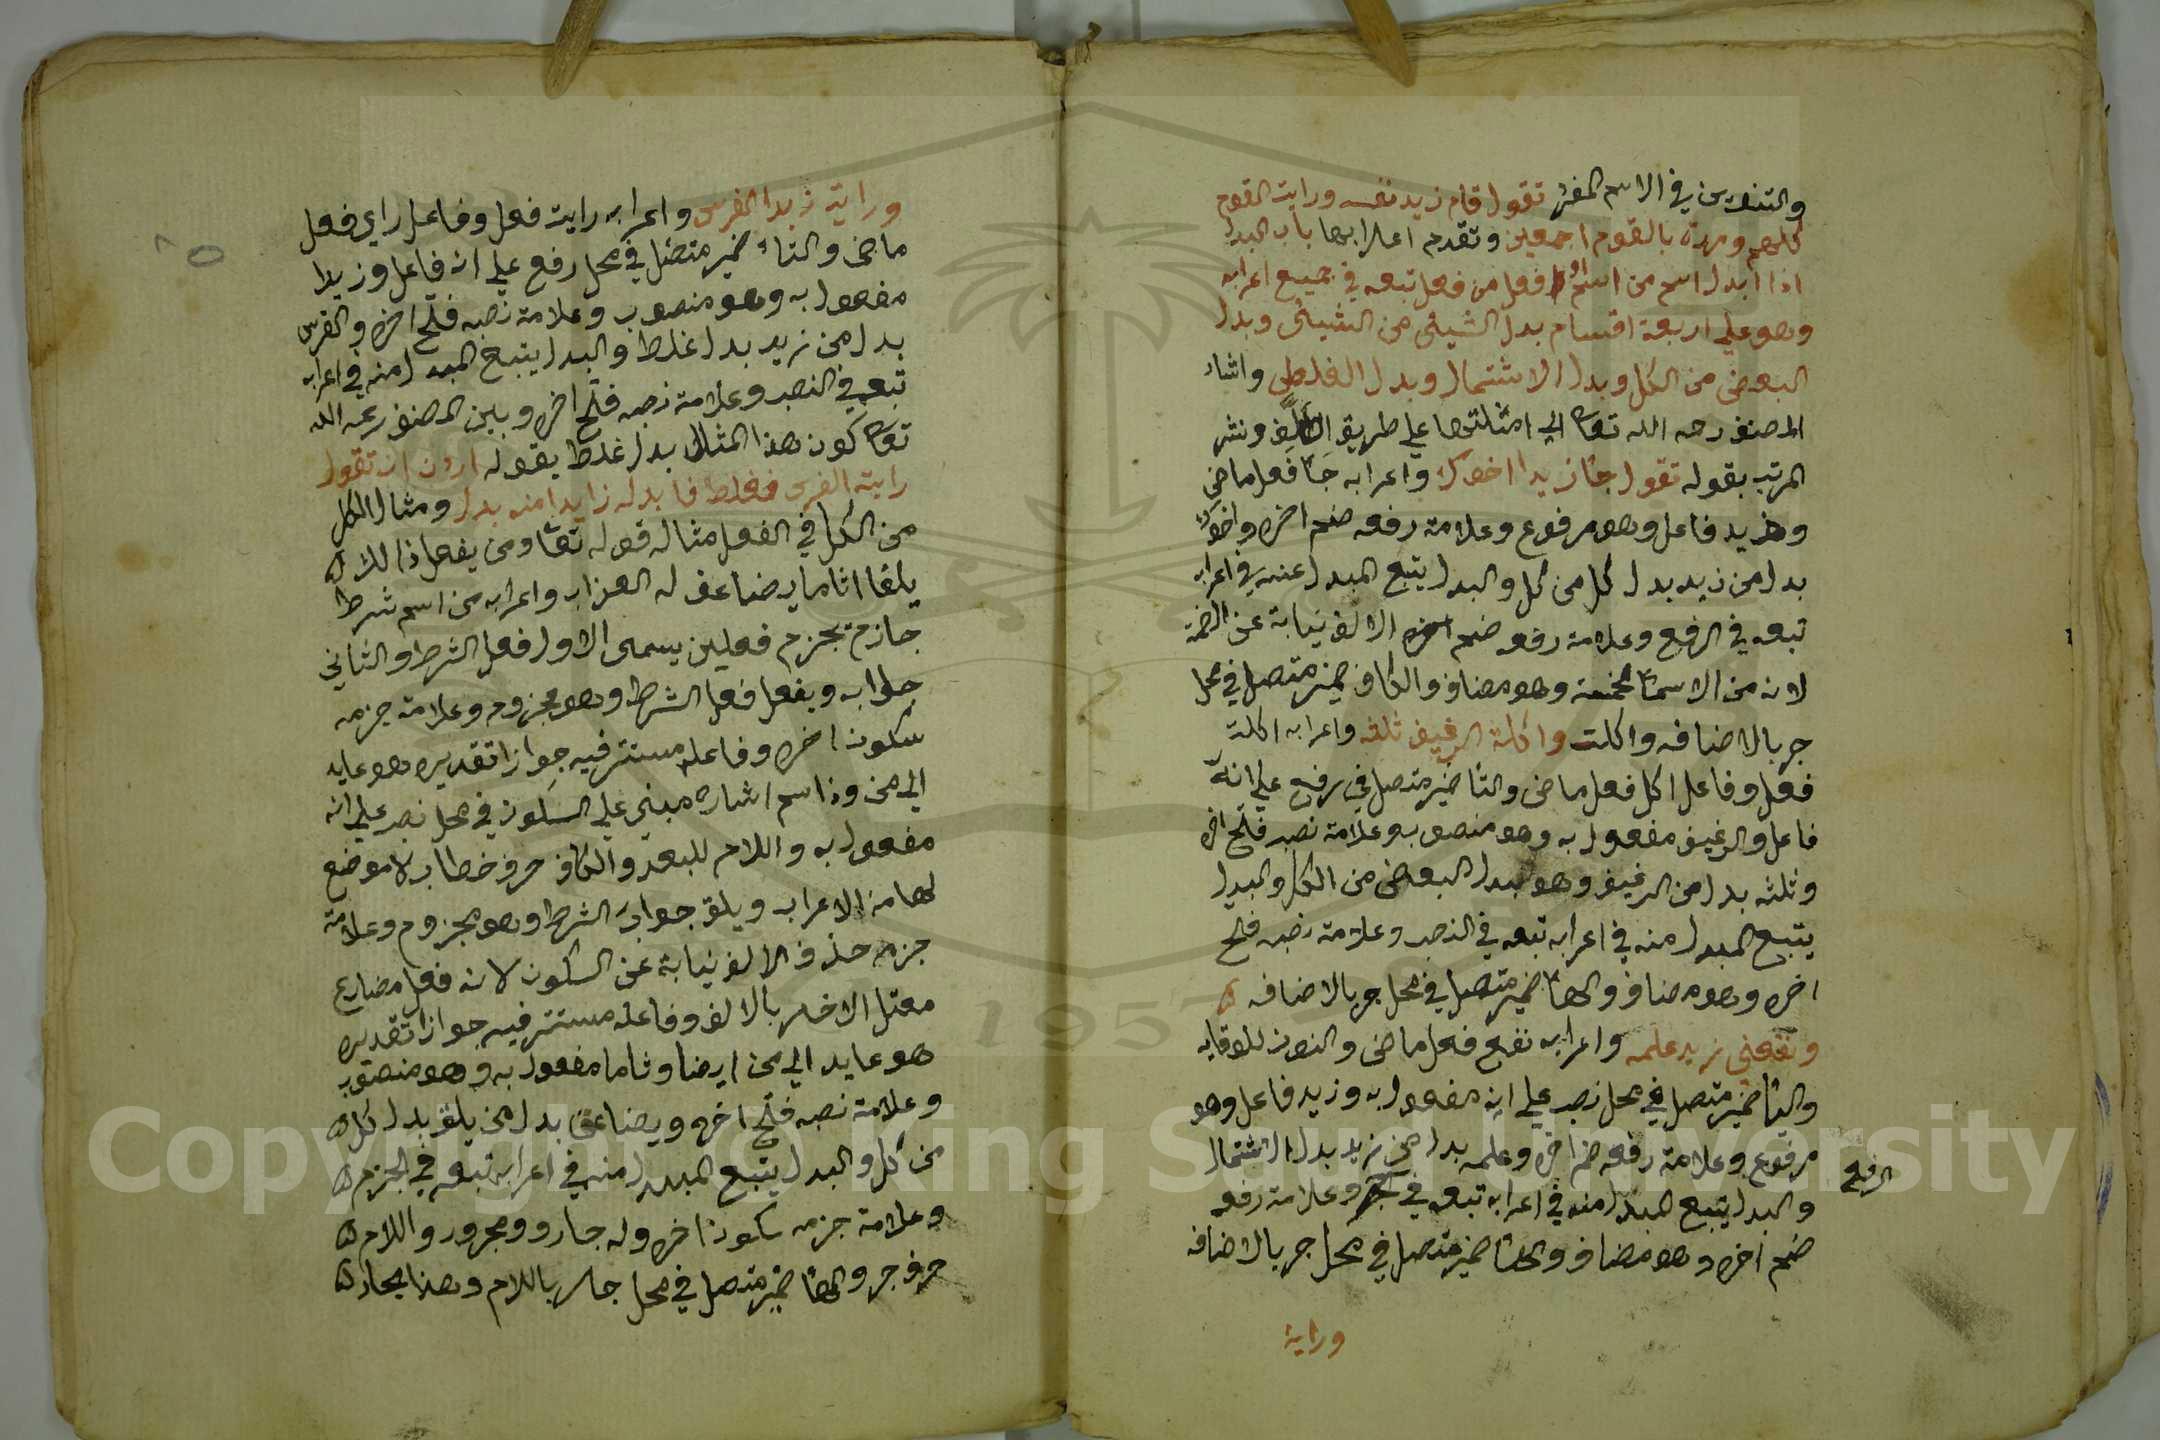 والتنوين في الاسم المفرد تقول قام زيد نفسه ورايت القوم
كلهم ومررة بالقوم اجمعين وتقدم اعرابها باب البدل
اذا ابدل اسم من اسم او فعل من فعل تبعه في جميع اعرابه
وهو علي اربعة اقسام بدل الشيئ من الشيئ وبدل
البعض من الكل وبدل الاشتمال وبدل الغلط واشار
المصنف رحمه الله تعا الي امثلتها علي طريق اللف ونشر
المرتب بقوله تقول جا زيد اخوك واعرابه جا فعل ماضي
وزيد فاعل وهو مرفوع وعلامة رفعه ضم اخره واخوك
بدل من زيد بدل كل من كل والبدل يتبع المبدل عنه في اعرابه
تبعه في الرفع وعلامة رفعه ضم اخره الالف نيابة عن الضمة
لانه من الاسما الخمسة وهو مضاف والكاف ضمير متصل في محل
جر بالاضافه واكلت واكلة الرغيف ثلثه واعرابه اكلت
فعل وفاعل اكل فعل ماضي والتا ضمير متصل في رفع علي انه
فاعل والرغيف مفعول به وهو منصوب وعلامة نصبه فتح اخره
وثلثه بدل من الرغيف وهو بدل البعض من الكل والبدل
يتبع المبدل منه في اعرابه تبعه في النصب وعلامة نصبه فتح
اخره وهو مضاف والها ضمير متصل في محل جر بالاضافه
ونفعني زيد علمه واعرابه نفع فعل ماضي والنون للوقايه
واليا ضمير متصل في محل نصب علي انه مفعول به وزيد فاعل وهو
مرفوع وعلامة رفعه ضم اخره وعلمه بدل من زيد بدل اشتمال
والبدل يتبع المبدل منه في اعرابه تبعه في وعلامة رفعه
الرفع
ضم اخره وهو مضاف والها ضمير متصل في محل جر بالاضافه
وراية
وراية زيدا الفرس واعرابه رايت فعل وفاعل راي فعل
ماضي والتاء ضمير متصل في محل رفع علي انه فاعل وزيدا
مفعول به وهو منصوب وعلامة نصبه فتح اخره والفرس
بدل من زيد بدل غلط والبدل يتبع المبدل منه في اعرابه
تبعه في النصب وعلامة نصبه فتح اخره وبين المصنف رحمه الله
تعا كون هذا المثال بدل غلط بقوله اردت ان تقول
راية الفرس فغلط فابدله زايدا منه بدل ومثال الكل
من الكل في الفعل مثاله قوله تعا ومن يفعل ذالك
يلقا اثاما يضاعف له العذاب واعرابه من اسم شرط
جازم بجزم فعلين يسمى الاول فعل الشرط والثاني
جوابه ويفعل فعل الشرط وهو مجزوم وعلامة جزمه
سكون اخره وفاعله مستتر فيه جوازا تقديره هو عايد
الي من وذا اسم اشاره مبني علي السكون في محل نصب علي انه
مفعول به واللام للبعد والكاف حرف خطاب لا موضع
لها من الاعراب ويلق جواب الشرط وهو مجزوم وعلامة
جزمه حذف الالف نيابة عن السكون لانه فعل مضارع
معتل الاخر بالالف وفاعله مستتر فيه جوازا تقديره
هو عايد الي من ايضا وثاما مفعول به وهو منصوب
وعلامة نصبه فتح اخره ويضاعف بدل من يلق بدل كل
من كل والبدل يتبع المبدل منه في اعرابه تبعه في الجزم
وعلامة جزمه سكون اخره وله جار ومجرور واللام
حرف جر والها ضمير متصل في محل جار باللام وهذا الجار
Copyright © King Saud University
1957